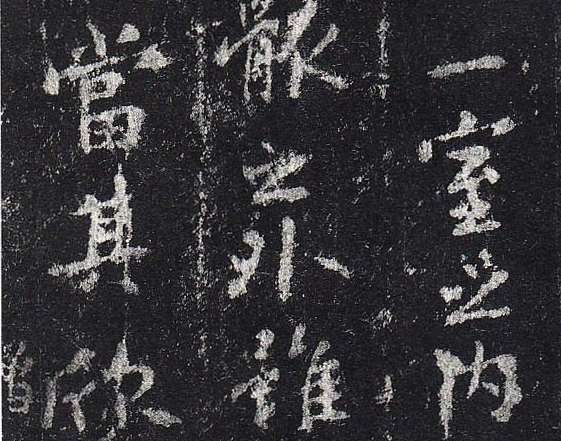 一室之内
骸之外雖
當其欣